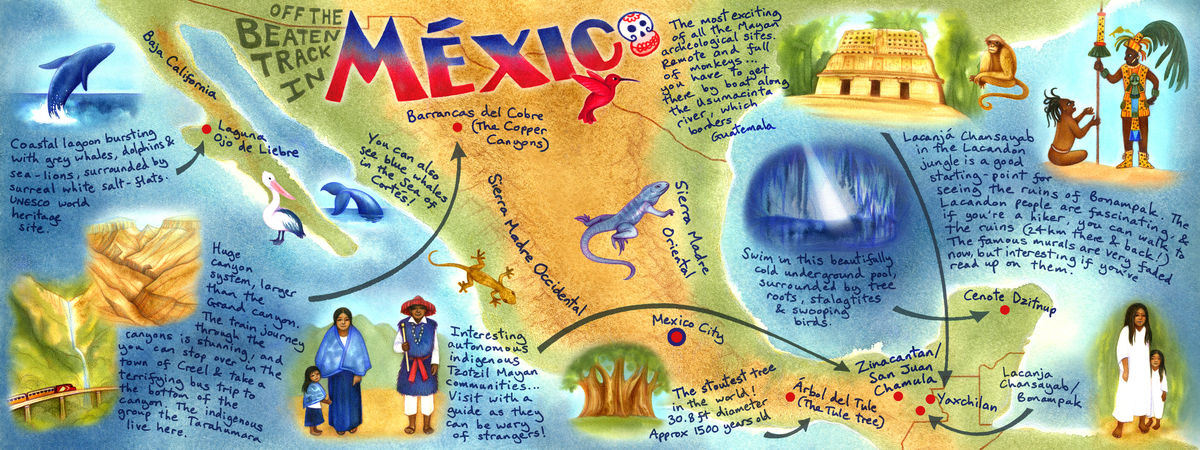 OFF THE
BEATEN
TRACK
IN
MÉXICO
Baja California
Coastal lagoon bursting
with grey whales, dolphins &
sea-lions, surrounded by
surreal white salt-flats.
UNESCO world
heritage
site.
Laguna
Ojo de Liebre
You can also
see blue whales
in the Sea of
Cortés!
Barrancas del Cobre
(The Copper
Canyons)
Huge
canyon
system, larger
than the
Grand canyon.
The train journey
through the
canyons is stunning, and
you can stop over in the
town of Creel & take a
terrifying bus trip to
the bottom of the
canyon. The indigenous
group the Tarahumara
live here.
Sierra Madre Occidental
Sierra Madre
Oriental
The most exciting
of all the Mayan
archeological sites.
Remote and full
of monkeys...
you have to get
there by boat along
the Usumacinta
river, which
borders
Guatemala
Lacanjá Chansayab
in the Lacandon
jungle is a good
starting-point for
seeing the ruins of Bonampak. The
Lacandon people are fascinating, &
if you're a hiker, you can walk to
the ruins (24km there & back!)
The famous murals are very faded
now, but interesting if you've
read up on them.
Swim in this beautifully
cold underground pool,
surrounded by tree
roots, stalagtites
& swooping
birds.
Cenote Dzitnup
Interesting
autonomous
indigenous
Tzotzil Mayan
communities...
Visit with a
guide as they
can be wary
of strangers!
Mexico City
The stoutest tree
in the world!
30.8 ft diameter
Approx 1500 years old
Árbol del Tule
(The Tule Tree)
Zinacantan/
San Juan
Chamula
Yaxchilan
Lacanja
Chansayab/
Bonampak